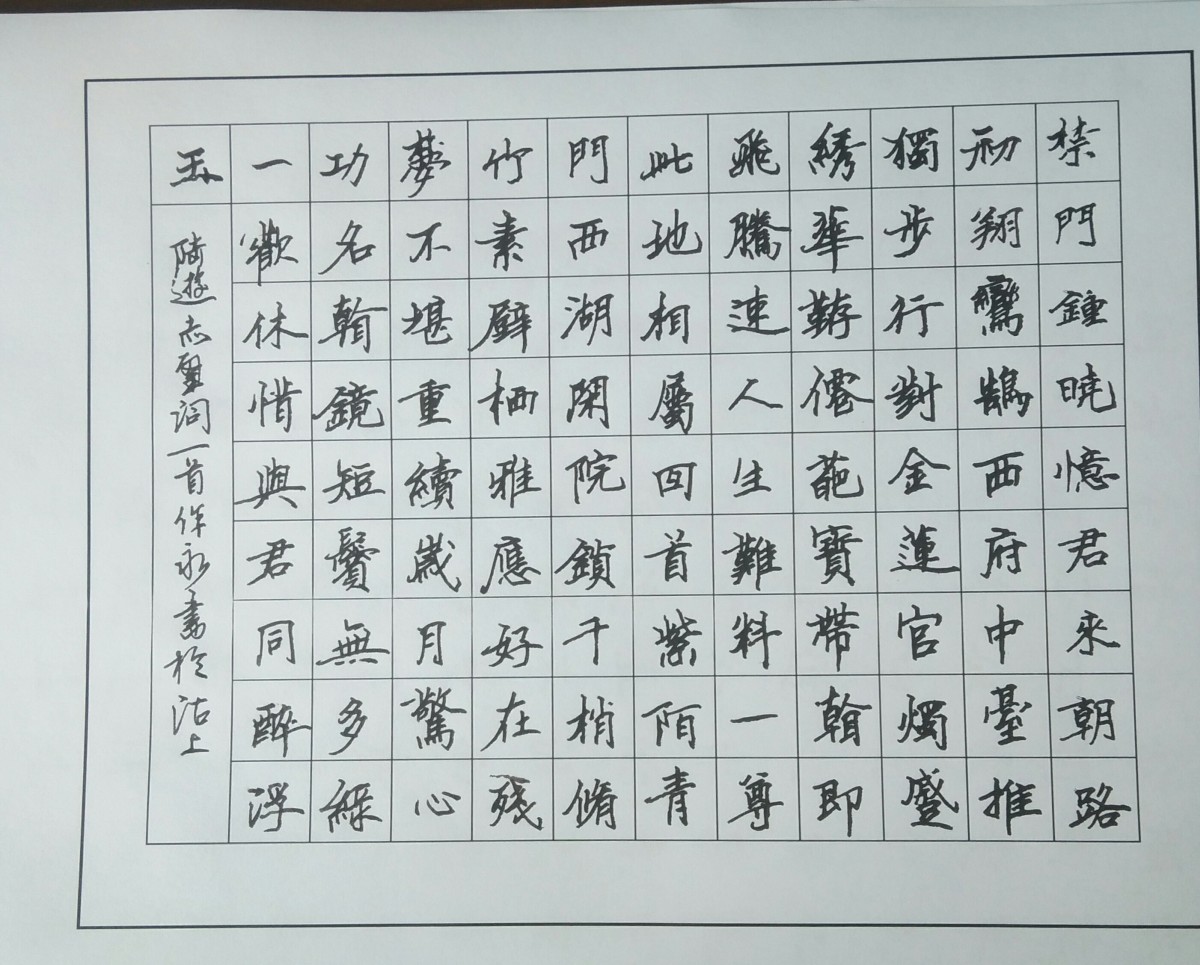 禁門鍾曉憶君來朝路
初翔鸞鵠西府中臺推
獨步行對金蓮官燭蹙
綉華韉僊葩寶帶看即
飛騰速人生難料一尊
此地相屬回首紫陌青
門西湖閑院鎖千梢脩
竹素壁栖雅應好在殘
夢不堪重續歲月驚心
功名看鏡短鬢無多綠
一歡休惜與君同醉浮
玉
陸遊赤壁詞一首作永書於沽上